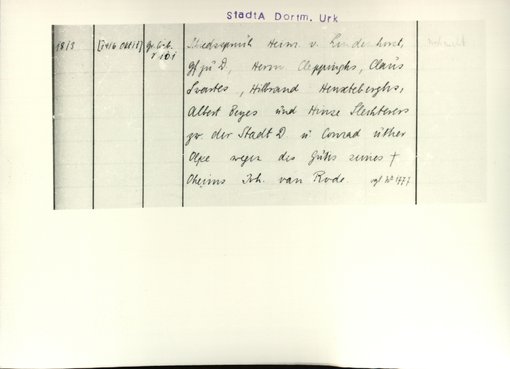 StadtA Dortm. Urk
1813 [1416 Okt 18]
Schiedsspruch Herm. v. Lindenhorst,
Gf zu D, Herm. Cleppinghs, Claus
Swartes, Hilbrand Henxteberghs,
Albert Beyes und Hinse Slechterers
zw. der Stadt D u Conrad uther
Olpe wegen des Guts seines †
Oheims Joh. van Rode vgl N° 1777